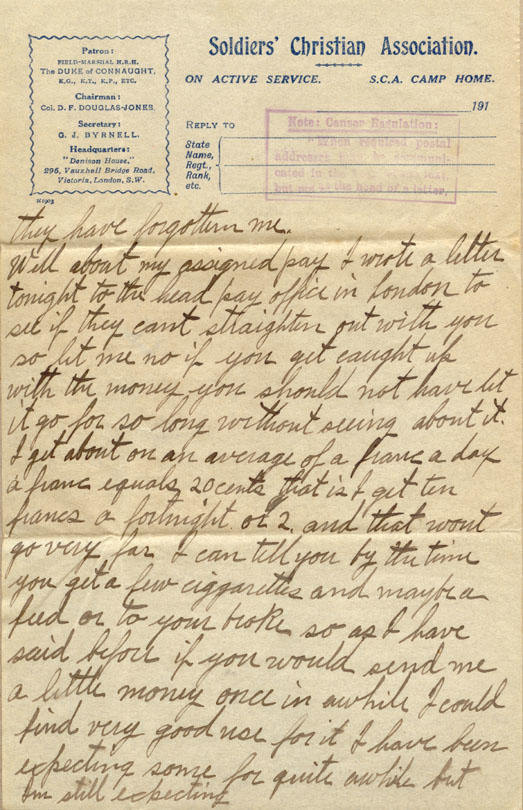 Patron:
FIELD-MARSHAL H.R.H.
The DUKE of CONNAUGHT,
K.G., K.T., K.P., ETC.
Chairman:
Col. D. F. DOUGLAS-JONES.
Secretary:
G. J. BYRNELL.
Headquarters:
"Denison House,"
296, Vauxhall Bridge Road,
Victoria, London, S.W.
Soldiers' Christian Association.
ON ACTIVE SERVICE. S.C.A. CAMP HOME.
191
REPLY TO
State
Name,
Regt.,
Rank,
etc.
Note: Censor Regulation:
"When required postal
addresses
cated in the
but not at the head of a letter.
they have forgotten me.
Well about my assigned pay I wrote a letter
tonight to the head pay office in London to
see if they cant straighten out with you
so let me no if you get caught up
with the money you should not have let
it go for so long without seeing about it.
I get about on an average of a franc a day
a franc equals 20 cents that is I get ten
francs a fortnight or 2 and that wont
go very far I can tell you by the time
you get a few ciggarettes and maybe a
feed or to your broke so as I have
said before if you would send me
a little money once in awhile I could
find very good use for it I have been
expecting some for quite awhile but
Im still expecting